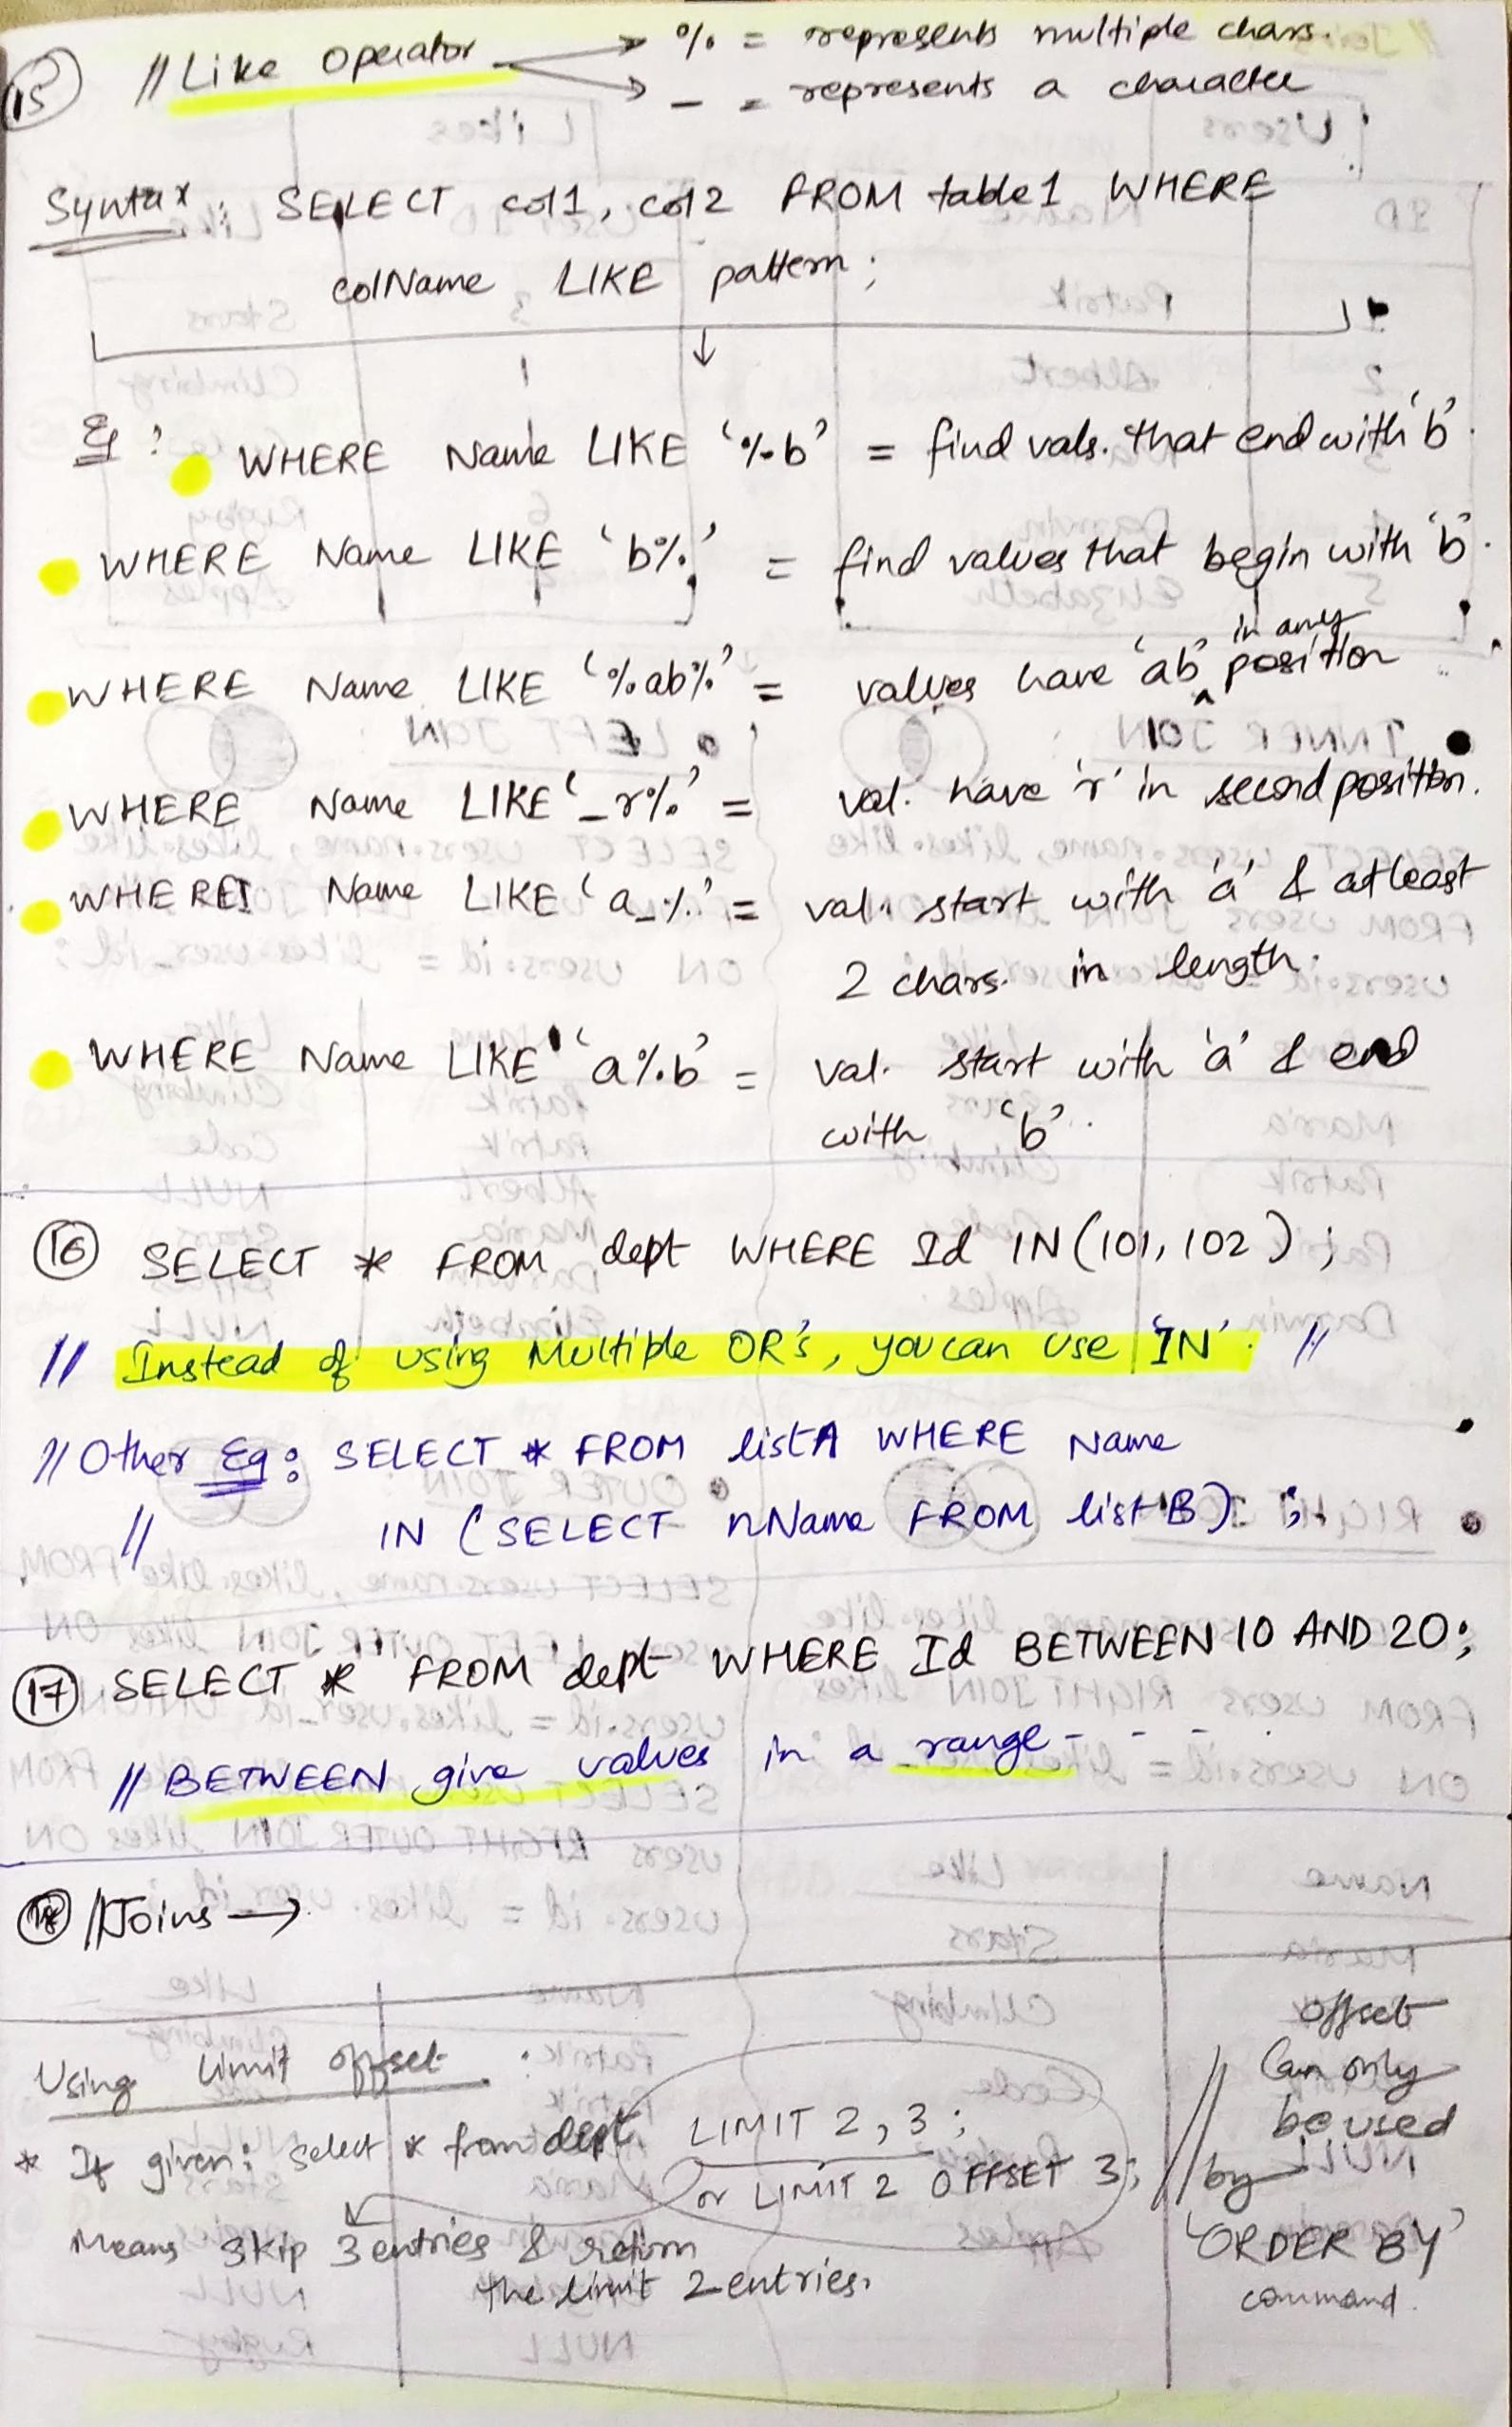 15 // Like Operator → % = represents multiple chars.
→ _ = represents a character
Syntax: SELECT col1, col2 FROM table1 WHERE
colName LIKE pattern;
Eg: WHERE Name LIKE '%b' = find vals. that end with 'b'.
WHERE Name LIKE 'b%' = find values that begin with 'b'.
WHERE Name LIKE '%ab%' = values have 'ab' in any position
WHERE Name LIKE '_r%' = val. have 'r' in second position.
WHERE Name LIKE 'a_%' = val. start with 'a' & atleast
2 chars. in length.
WHERE Name LIKE 'a%b' = val. start with 'a' & end
with 'b'.
16 SELECT * FROM dept WHERE Id IN(101, 102);
// Instead of using Multiple OR's, you can use 'IN'. //
// Other Eg: SELECT * FROM listA WHERE Name
// IN (SELECT nName FROM listB);
17 SELECT * FROM dept WHERE Id BETWEEN 10 AND 20;
// BETWEEN give values in a range - - - .
18 // Joins →
Using limit offset:
* If given: select * from dept LIMIT 2, 3;
or LIMIT 2 OFFSET 3;
Means skip 3 entries & return
the limit 2 entries.
// Offset
Can only
be used
by
'ORDER BY'
command.